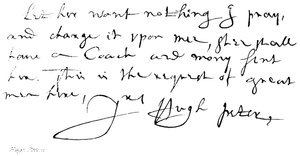 Let her want nothing I pray,
and charge it upon mee, shee shall
haue a Coach and mony sent
her. This is the request of great
men here,
Hugh Peter,